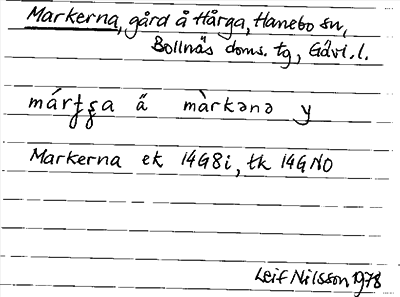 Markerna, gård å Hårga, Hanebo sn,
Bollnäs doms. tg, Gävl. l.
ä màrkənə y
Markerna ek 14G8i, tk 14GNO
Leif Nilsson 1978